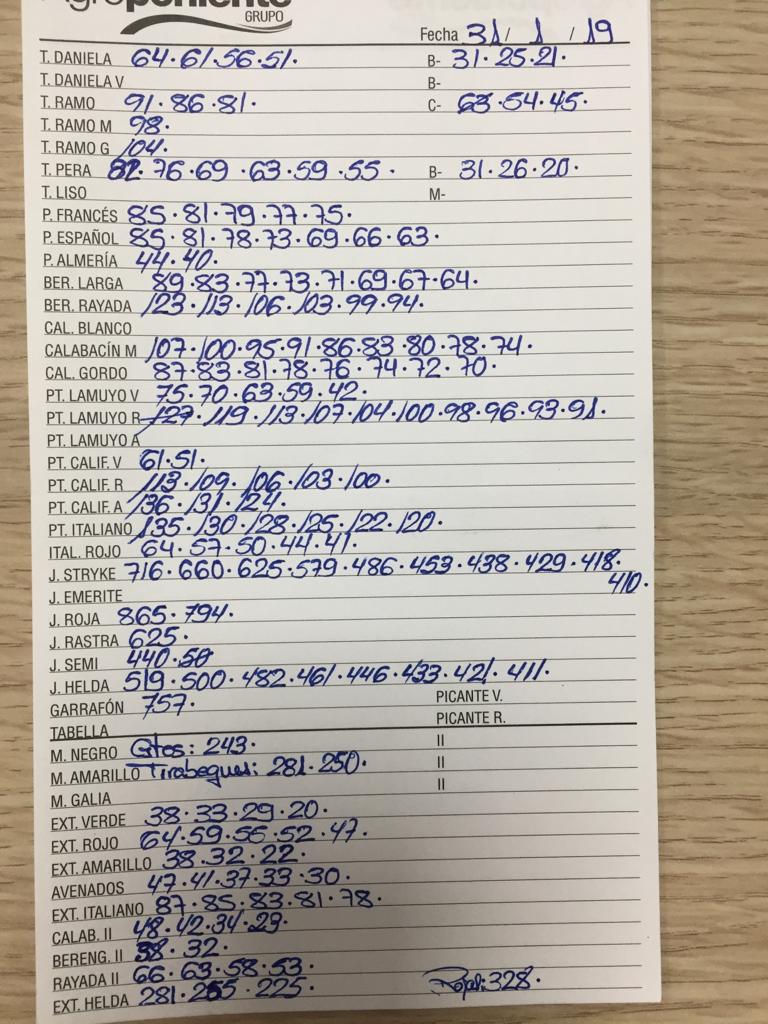 Agroponiente
GRUPO
Fecha 31 / 1 / 19
T. DANIELA 64.61.56.51. B- 31.25.21.
T. DANIELA V B-
T. RAMO 91.86.81. C- 63.54.45.
T. RAMO M 98.
T. RAMO G 104.
T. PERA 82.76.69.63.59.55. B- 31.26.20.
T. LISO M-
P. FRANCÉS 85.81.79.77.75.
P. ESPAÑOL 85.81.78.73.69.66.63.
P. ALMERÍA 44.40.
BER. LARGA 89.83.77.73.71.69.67.64.
BER. RAYADA 123.113.106.103.99.94.
CAL. BLANCO
CALABACÍN M 107.100.95.91.86.83.80.78.74.
CAL. GORDO 87.83.81.78.76.74.72.70.
PT. LAMUYO V 75.70.63.59.42.
PT. LAMUYO R 127.119.113.107.104.100.98.96.93.91.
PT. LAMUYO A
PT. CALIF. V 61.51.
PT. CALIF. R 113.109.106.103.100.
PT. CALIF. A 136.131.124.
PT. ITALIANO 135.130.128.125.122.120.
ITAL. ROJO 64.57.50.44.41.
J. STRYKE 716.660.625.579.486.453.438.429.418.
J. EMERITE 410.
J. ROJA 865.794.
J. RASTRA 625.
J. SEMI 440.50
J. HELDA 519.500.482.461.446.433.421.411.
GARRAFÓN 757. PICANTE V.
TABELLA PICANTE R.
M. NEGRO Gtes: 243. II
M. AMARILLO Tirabeques: 281.250. II
M. GALIA II
EXT. VERDE 38.33.29.20.
EXT. ROJO 64.59.56.52.47.
EXT. AMARILLO 38.32.22.
AVENADOS 47.41.37.33.30.
EXT. ITALIANO 87.85.83.81.78.
CALAB. II 48.42.34.23.
BERENG. II 38.32.
RAYADA II 66.63.58.53.
EXT. HELDA 281.255.225. Rojas: 328.